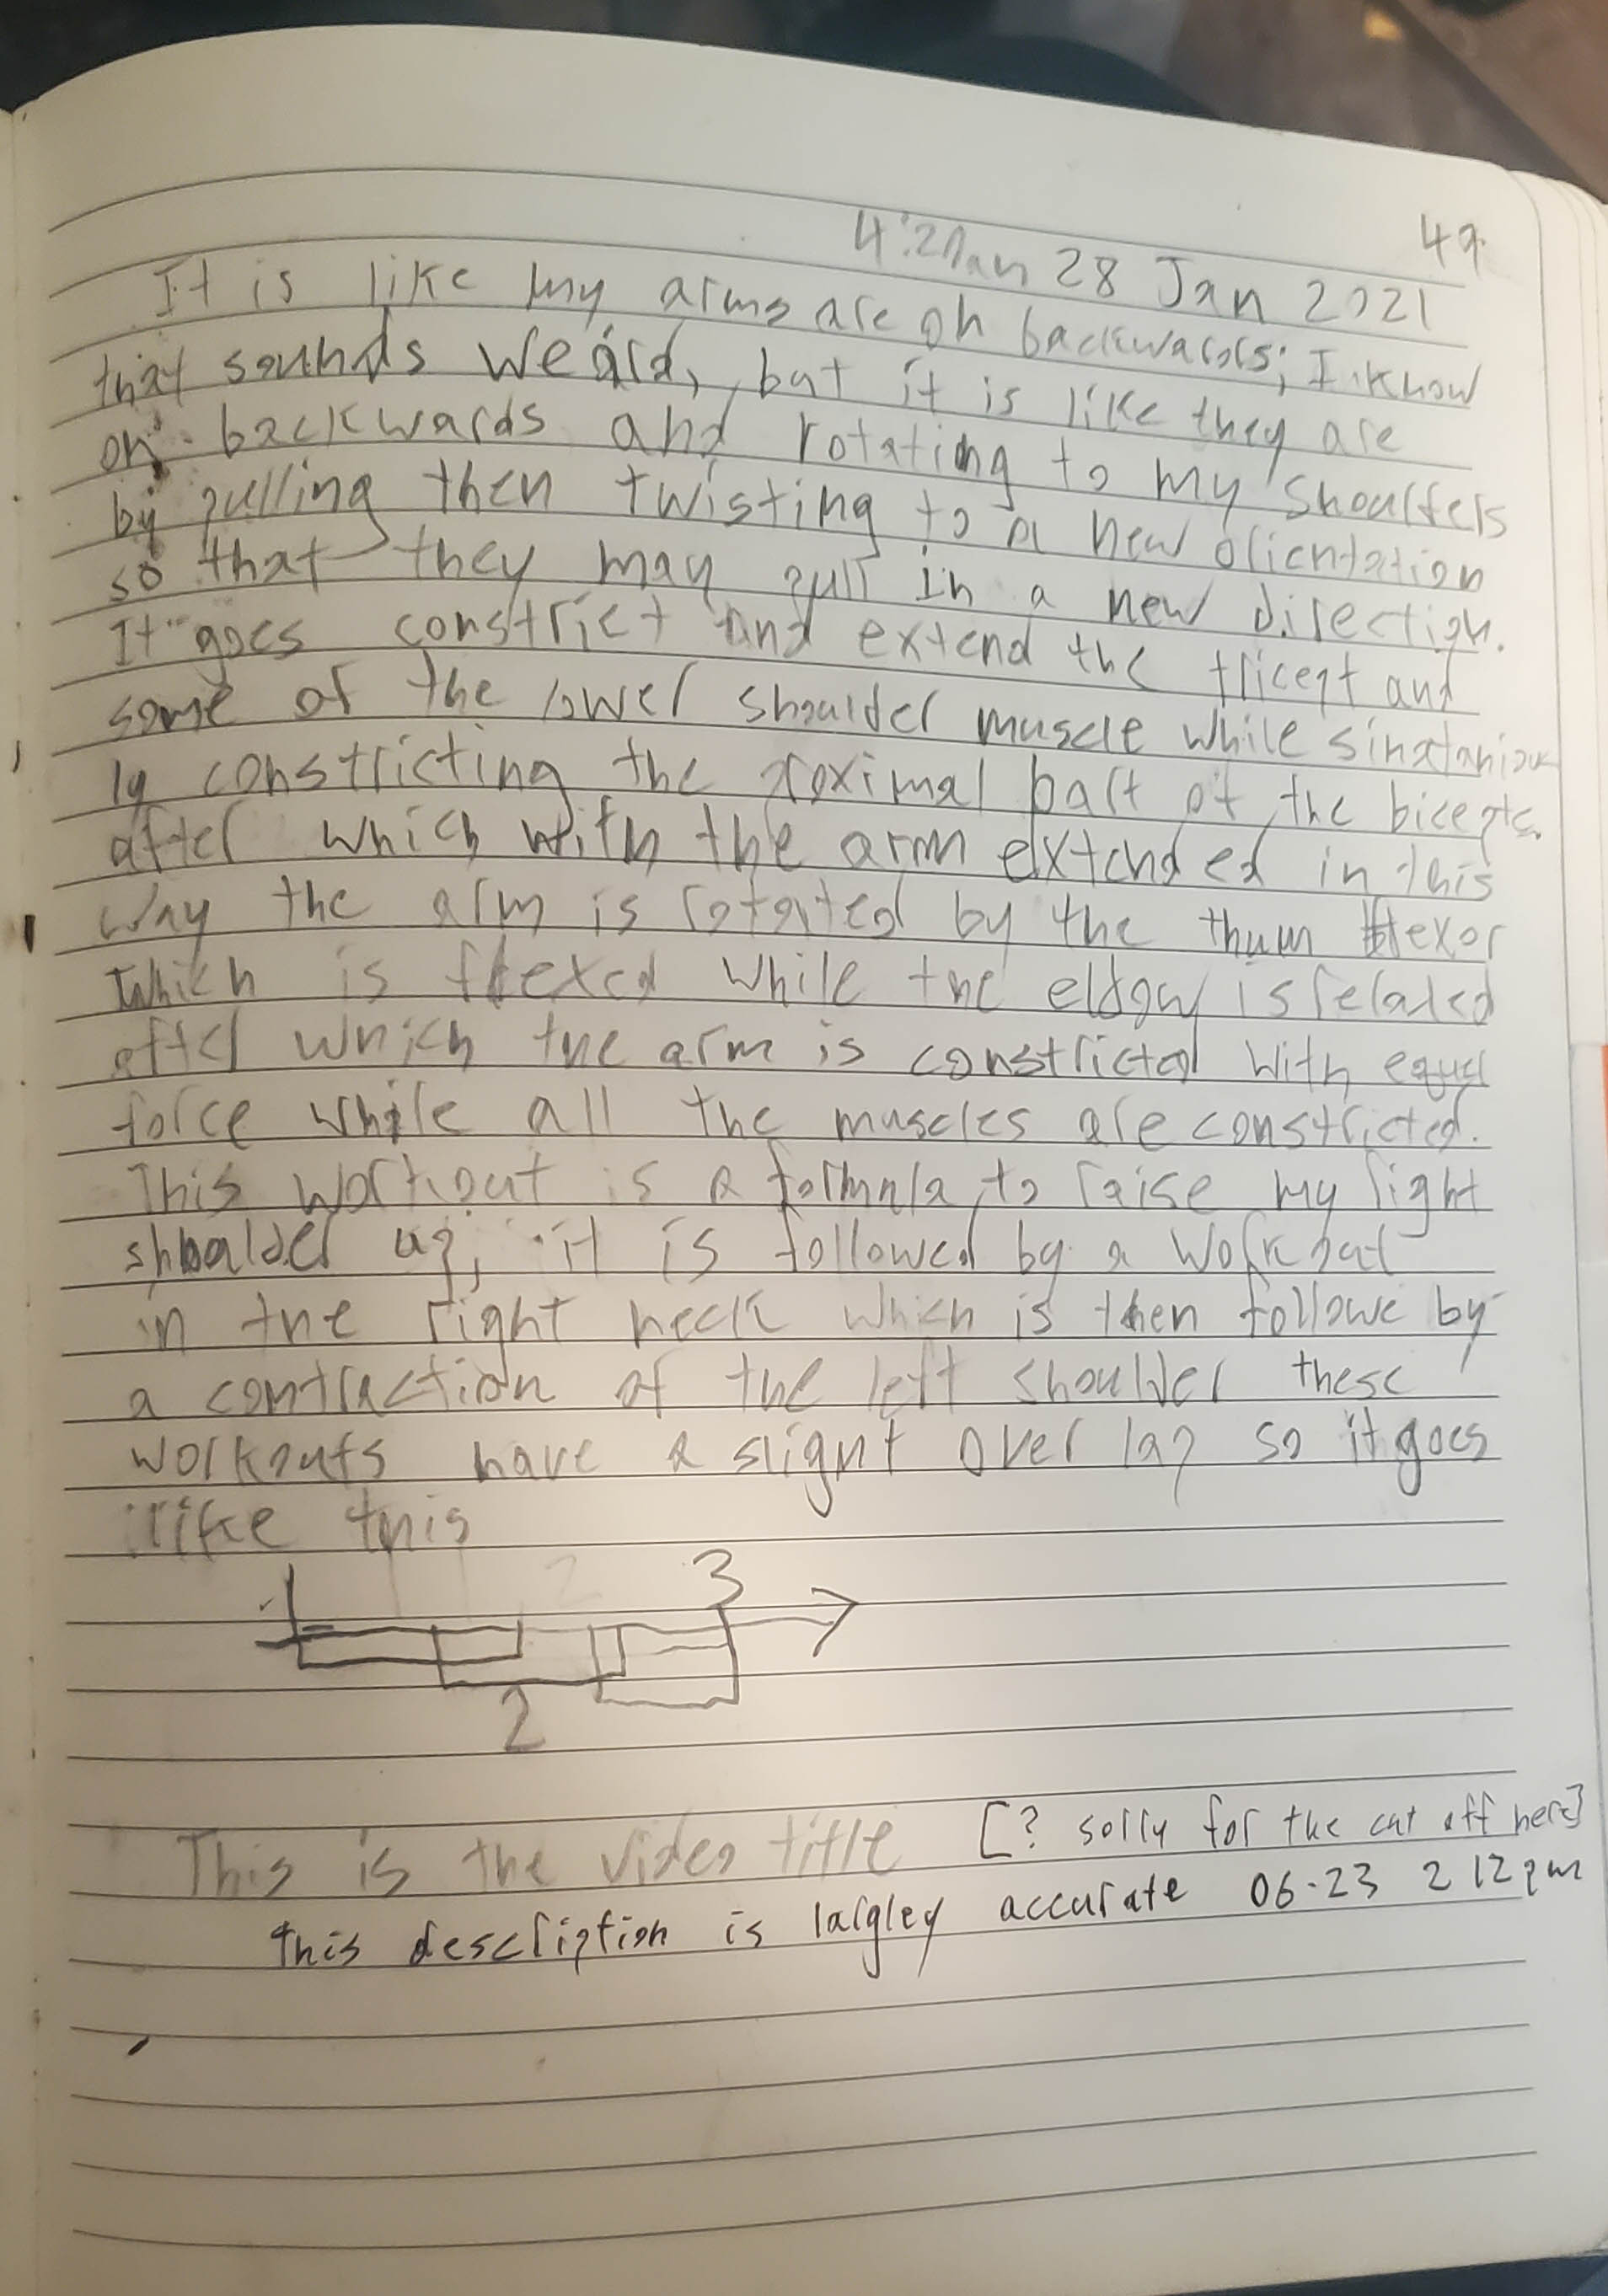 49
4:20am 28 Jan 2021
It is like my arms are on backwards; I know
that sounds weard, but it is like they are
on backwards and rotating to my shoulders
by pulling then twisting to a new orientation
so that they may pull in a new direction.
It goes constrict and extend the tricept and
some of the lower shoulder muscle while
ly constricting the proximal part of the bicepts.
after which with the arm extended in this
way the arm is rotated by the thum flexor
which is flexed while the elbow is relaxed
after which the arm is constricted with equal
force while all the muscles are constricted.
This workout is a formula to raise my right
shoulder up; it is followed by a workout
in the right neck which is then followe by
a contraction of the left shoulder these
workouts have a slight over lap so it goes
like this
1 3
2
This is the video title [? sorry for the cut off here]
this description is largley accurate 06-23 2 12pm